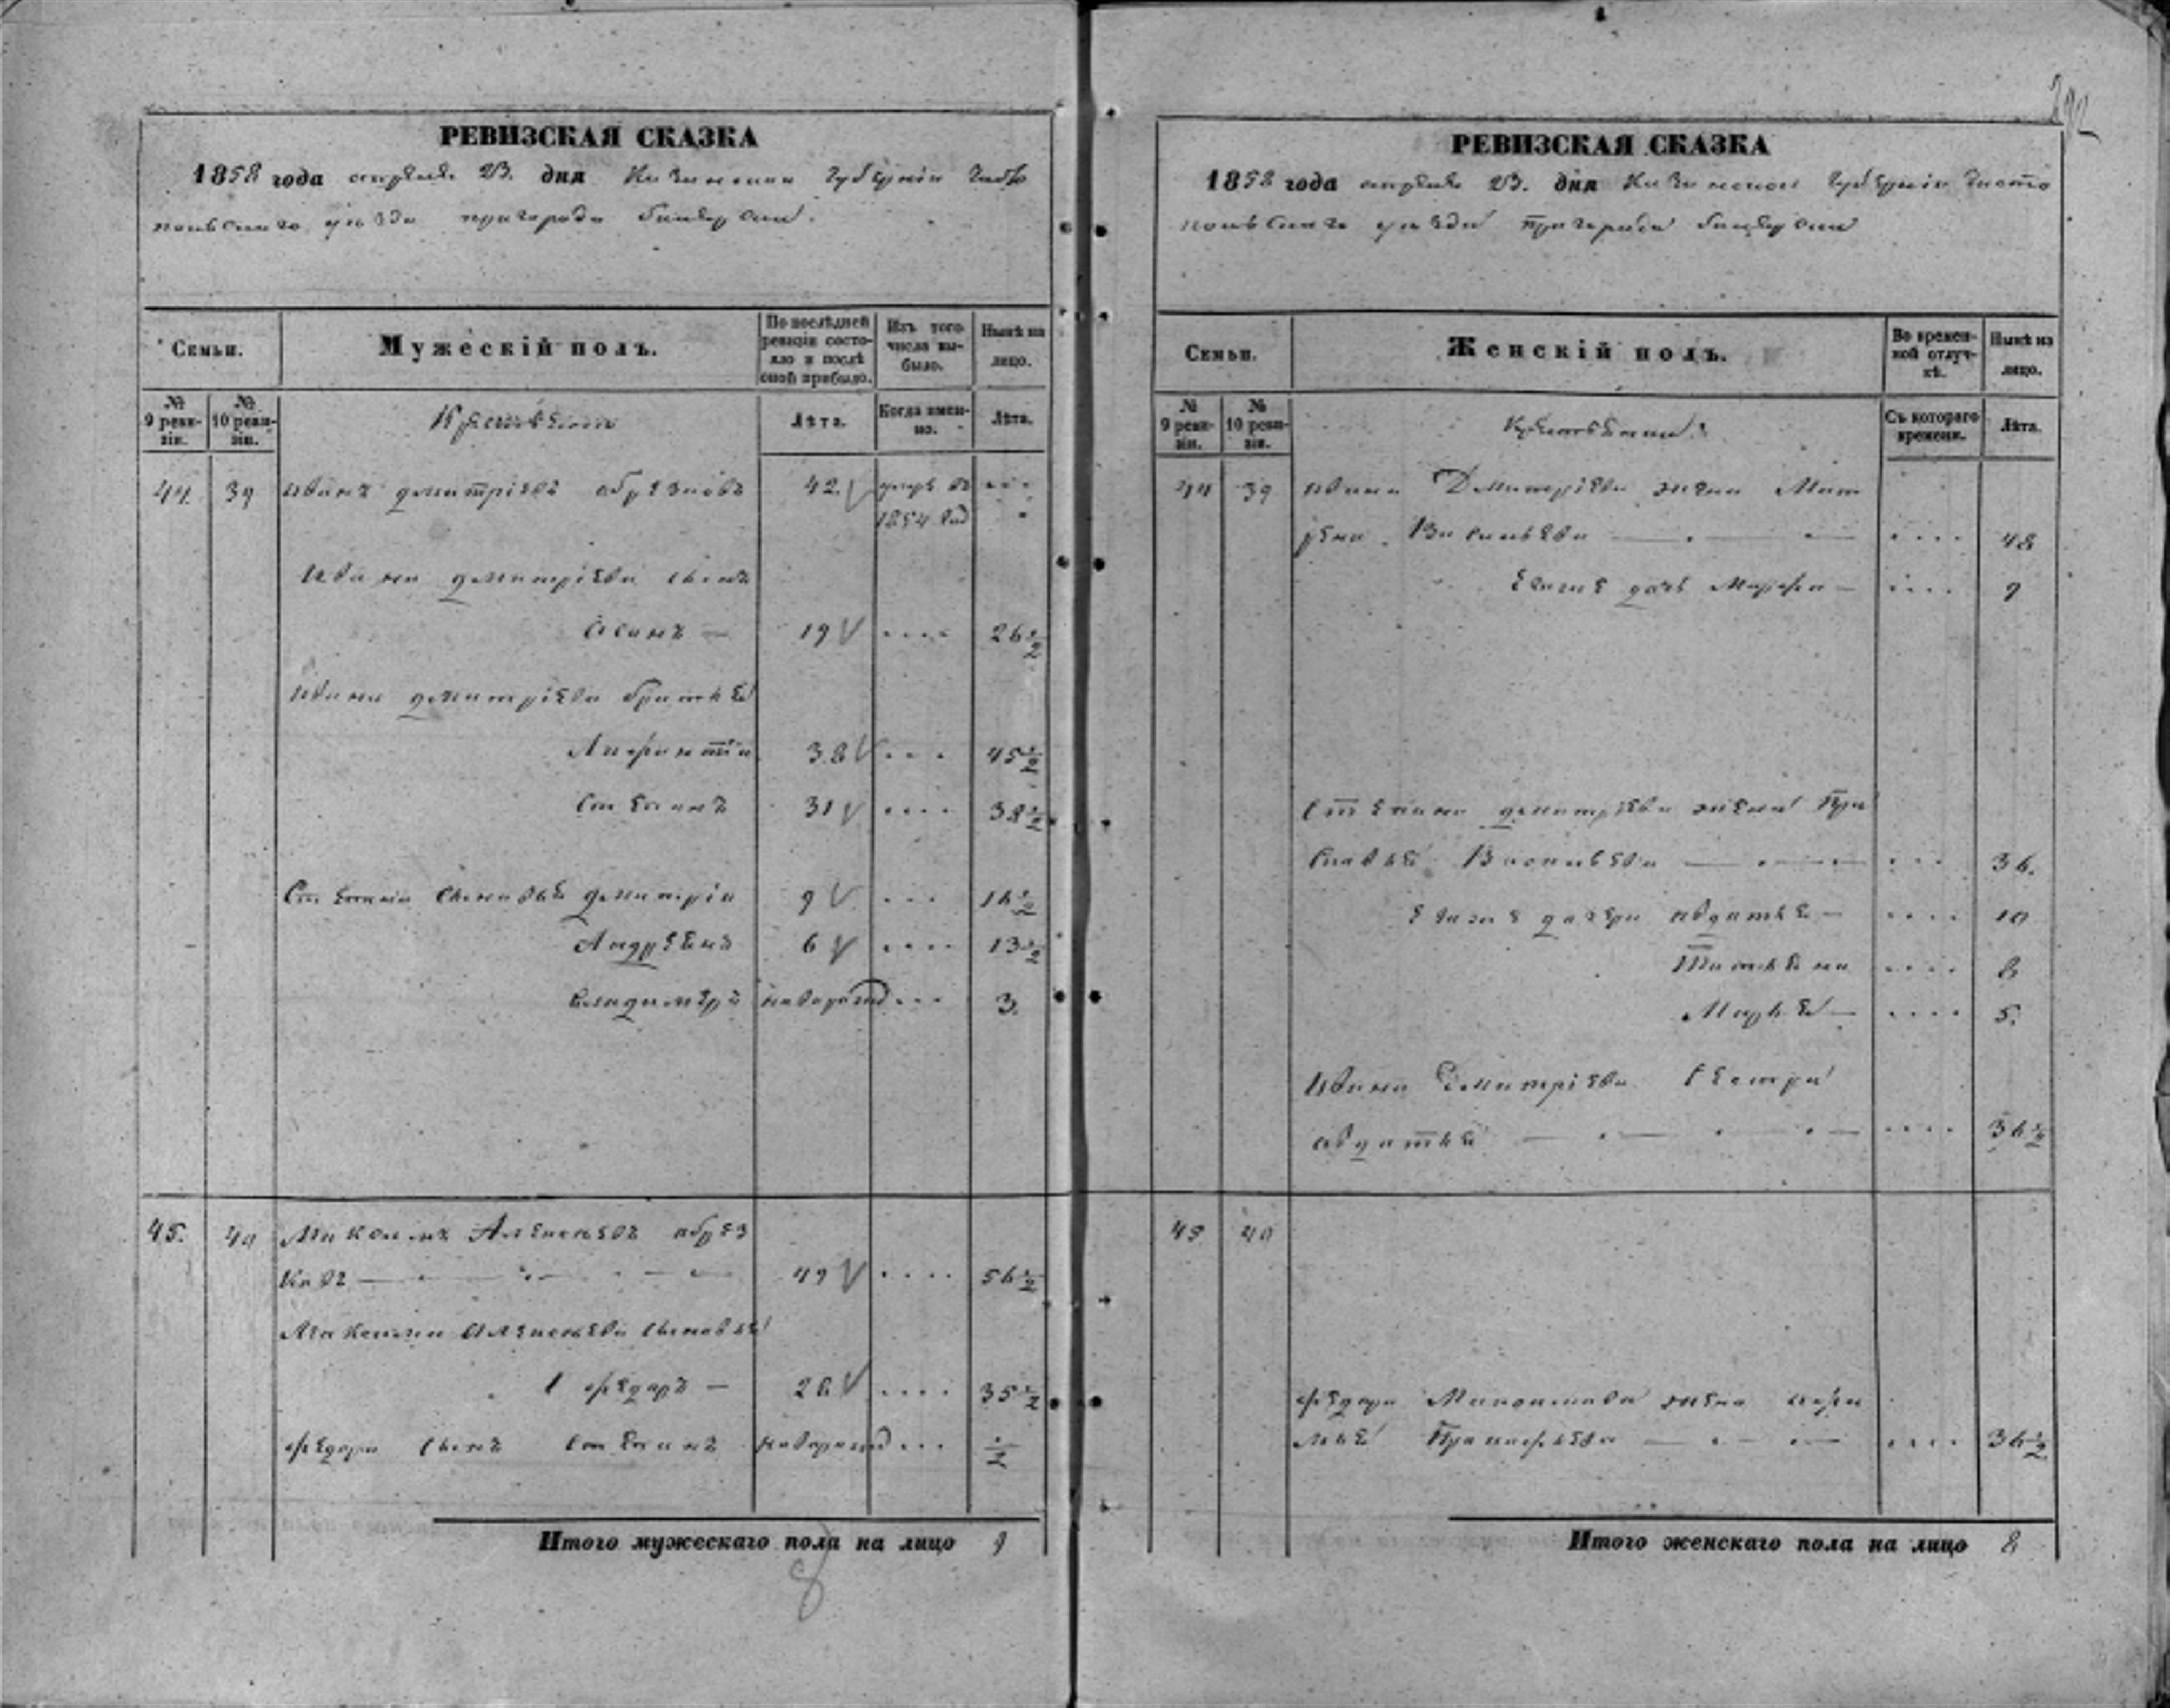 292
РЕВИЗСКАЯ СКАЗКА
1858 года апреля 23. дня Казанской губернiи Чисто
польскаго уезда пригорода билярска.
Семьи.
Мужескій полъ.
По послѣдней ревизіи состояло и послѣ оной прибыло.
Изъ того числа выбыло.
Нынѣ на лицо.
№ 9 ревизіи.
№ 10 ревизіи.
Крестьяне
Лѣта.
Когда именно.
Лѣта.
44. 39 иванъ дмитріевъ абрезковъ 42. умеръ въ
1854 год
Ивана дмитріева сынъ
Осипъ — 19 .... 26 ½
ивана дмитріева братья
Лаврентiи 38 ... 45 ½
Степанъ 31 .... 38 ½
Степана сыновья дмитрiи 9 ... 16 ½
Андреянъ 6 .... 13 ½
владимеръ новорожд ... 3.
45. 40 Максимъ Алексеевъ абрез
ковъ 49 .... 56 ½
Максима Алексеева сыновья
1 федоръ — 28 .... 35 ½
федора сынъ степанъ новорожд ... ½
Итого мужескаго пола на лицо 9
8
РЕВИЗСКАЯ СКАЗКА
1858 года апреля 23. дня Казанской губернiи Чисто
польскаго уезда пригорода билярска
Семьи.
Женскій полъ.
Во временной отлучкѣ.
Нынѣ на лицо.
№ 9 ревизіи.
№ 10 ревизіи.
Крестьянки.
Съ котораго времени.
Лѣта.
44 39 ивана Дмитріева жена Мат
рена Васильева .... 48
его же дочь Марфа — .... 9
Степана дмитріева жена Пра
сковья Васильева ... 36.
его же дочери авдотья — .... 10
Татьяна .... 8
Марья — .... 5.
Ивана Дмитріева сестра
авдотья .... 36 ½
45 40
федора Максимова жена
Пракофьева .... 36 ½
Итого женскаго пола на лицо 8